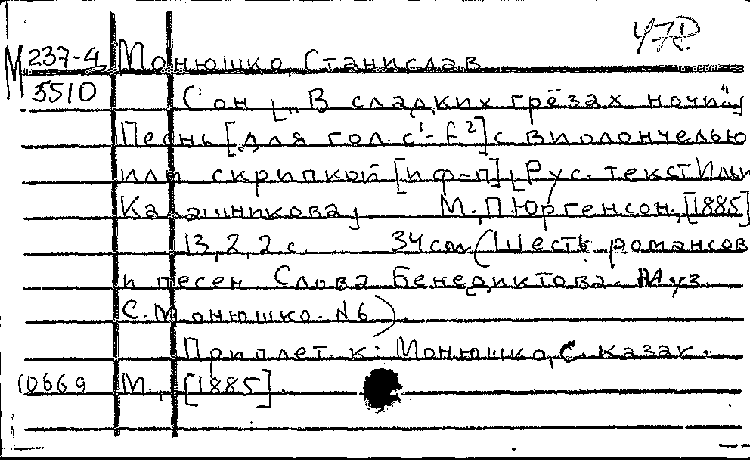 47р.
М 237-4 Монюшко, Станислав
5510 Сон [„В сладких грёзах ночи"]
Песнь [для гол. c¹-f²] с виолончелью
или скрипкой [и ф-п], [Рус. текст Ильи
Калашникова] М., П. Юргенсон, [1885]
13, 2, 2 с. 34 см. (Шесть романсов
и песен. Слова Бенедиктова. Муз.
С. Монюшко. N6)
Приплет. к: Монюшко, С. Казак.
10669 М., [1885]